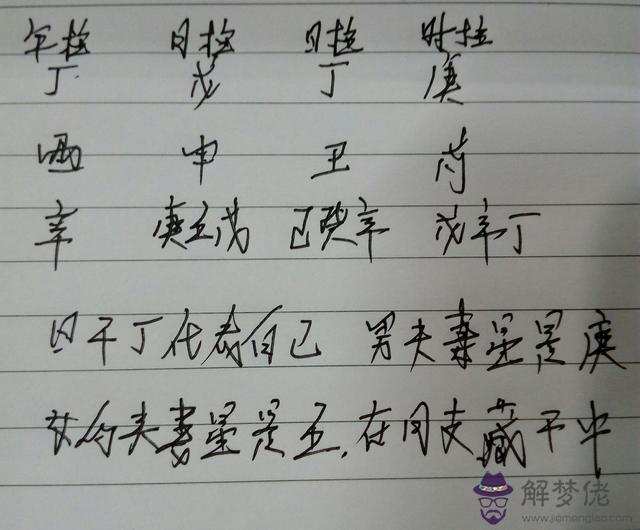 年柱 月柱 日柱 时柱
丁 戊 丁 庚
酉 申 丑 戌
辛 庚壬戊 己癸辛 戊辛丁
日干丁代表自己 男夫妻星是庚
女的夫妻星是壬,在月支藏干中
解梦佬
www.jiemenglao.com